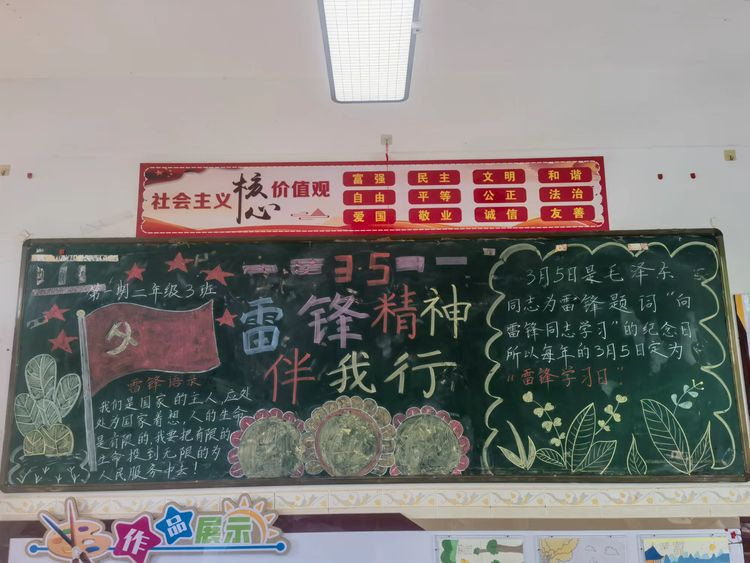 社会主义核心价值观
富强 民主 文明 和谐
自由 平等 公正 法治
爱国 敬业 诚信 友善
第一期二年级3班
3.5
雷锋精神
伴我行
雷锋语录
我们是国家的主人,应处
处为国家着想,人的生命
是有限的,我要把有限的
生命投到无限的为
人民服务中去!
3月5日是毛泽东
同志为雷锋题词"向
雷锋同志学习"的纪念日
所以每年的3月5日定为
"雷锋学习日"
作品展示